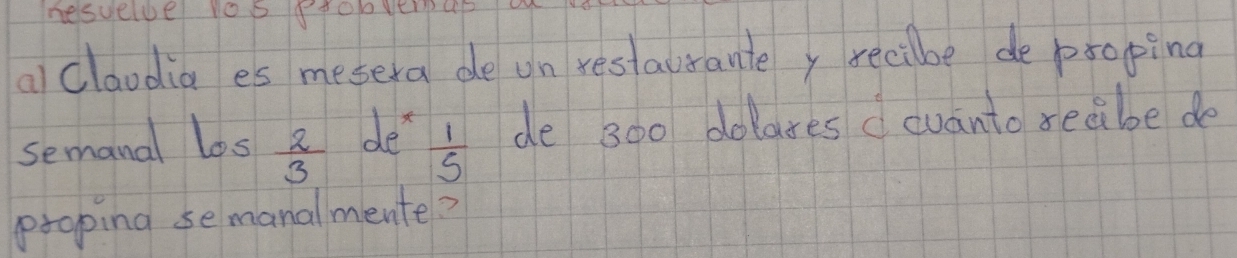 Resuelve los problemas
a) Claudia es mesera de un restaurante y recibe de propina
semanal los 2/3 de* 1/5 de 300 dolares ¿cuánto recibe de
propina semanalmente?